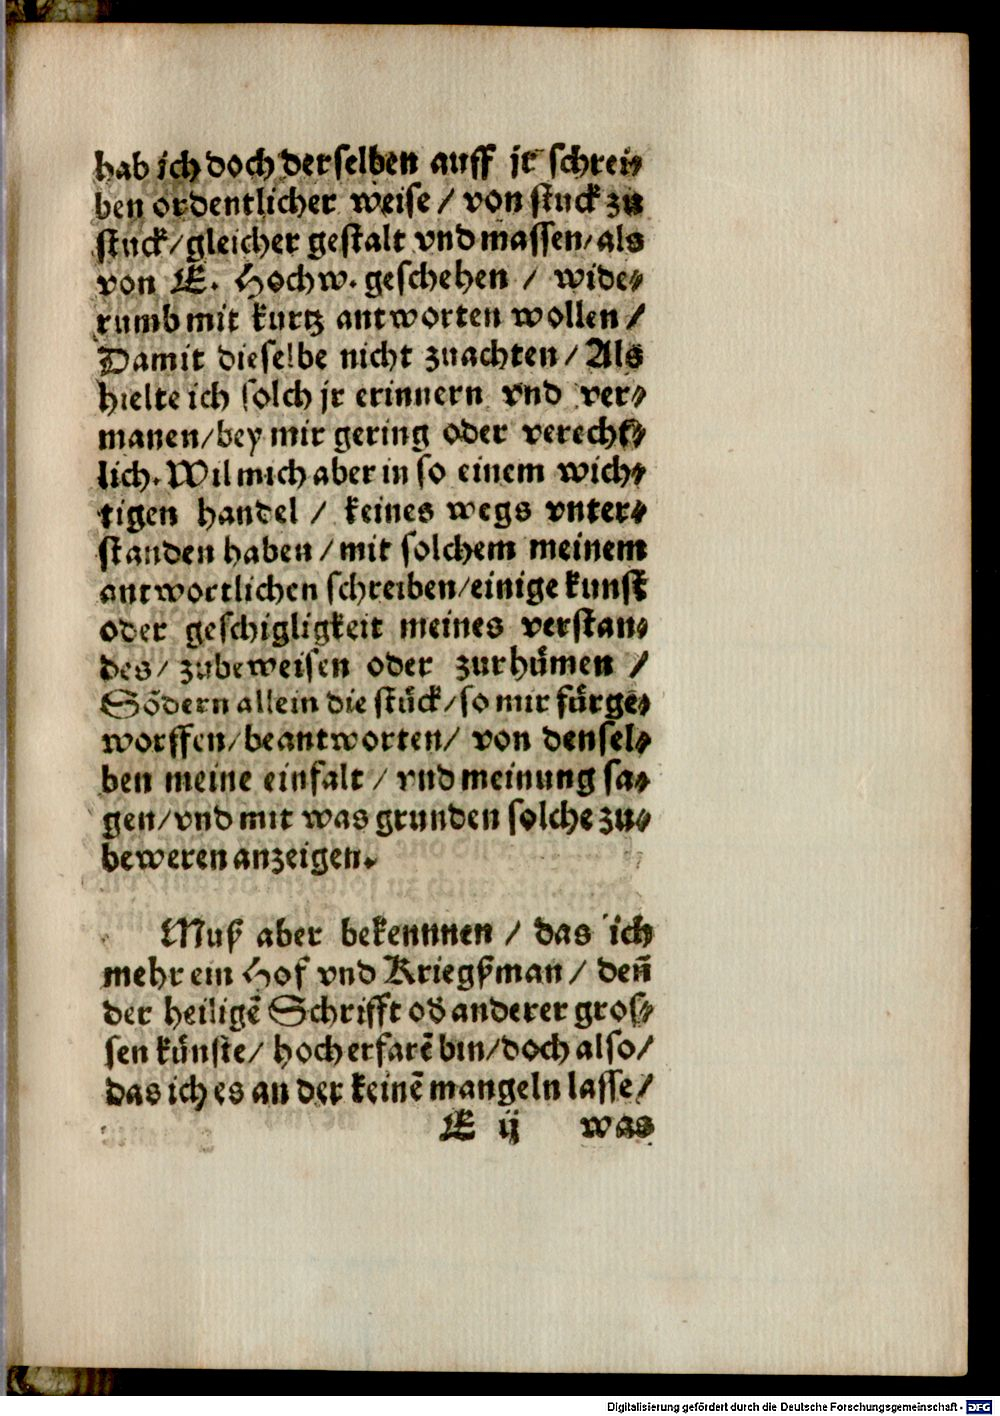 hab ich doch derselben auff jr schrei⸗
ben ordentlicher weise / von stuck zu
stuck / gleicher gestalt vnd massen / als
von E. Hochw. geschehen / wide⸗
rumb mit kurtz antworten wollen /
Damit dieselbe nicht zuachten / Als
hielte ich solch jr erinnern vnd ver⸗
manen / bey mir gering oder verecht⸗
lich. Wil mich aber in so einem wich⸗
tigen handel / keines wegs vnter⸗
standen haben / mit solchem meinem
antwortlichen schreiben / einige kunst
oder geschigligkeit meines verstan⸗
des / zubeweisen oder zurhuͤmen /
Sõdern allein die stuͤck / so mir fuͤrge⸗
worffen / beantworten / von densel⸗
ben meine einfalt / vnd meinung sa⸗
gen / vnd mit was grunden solche zu⸗
beweren anzeigen.
Muß aber bekennnen / das ich
mehr ein Hof vnd Kriegßman / deñ
der heiligẽ Schrifft oď anderer gros⸗
sen kuͤnste / hoch erfarẽ bin / doch also /
das ich es an der keinẽ mangeln lasse /
E ij was
Digitalisierung gefördert durch die Deutsche Forschungsgemeinschaft - DFG